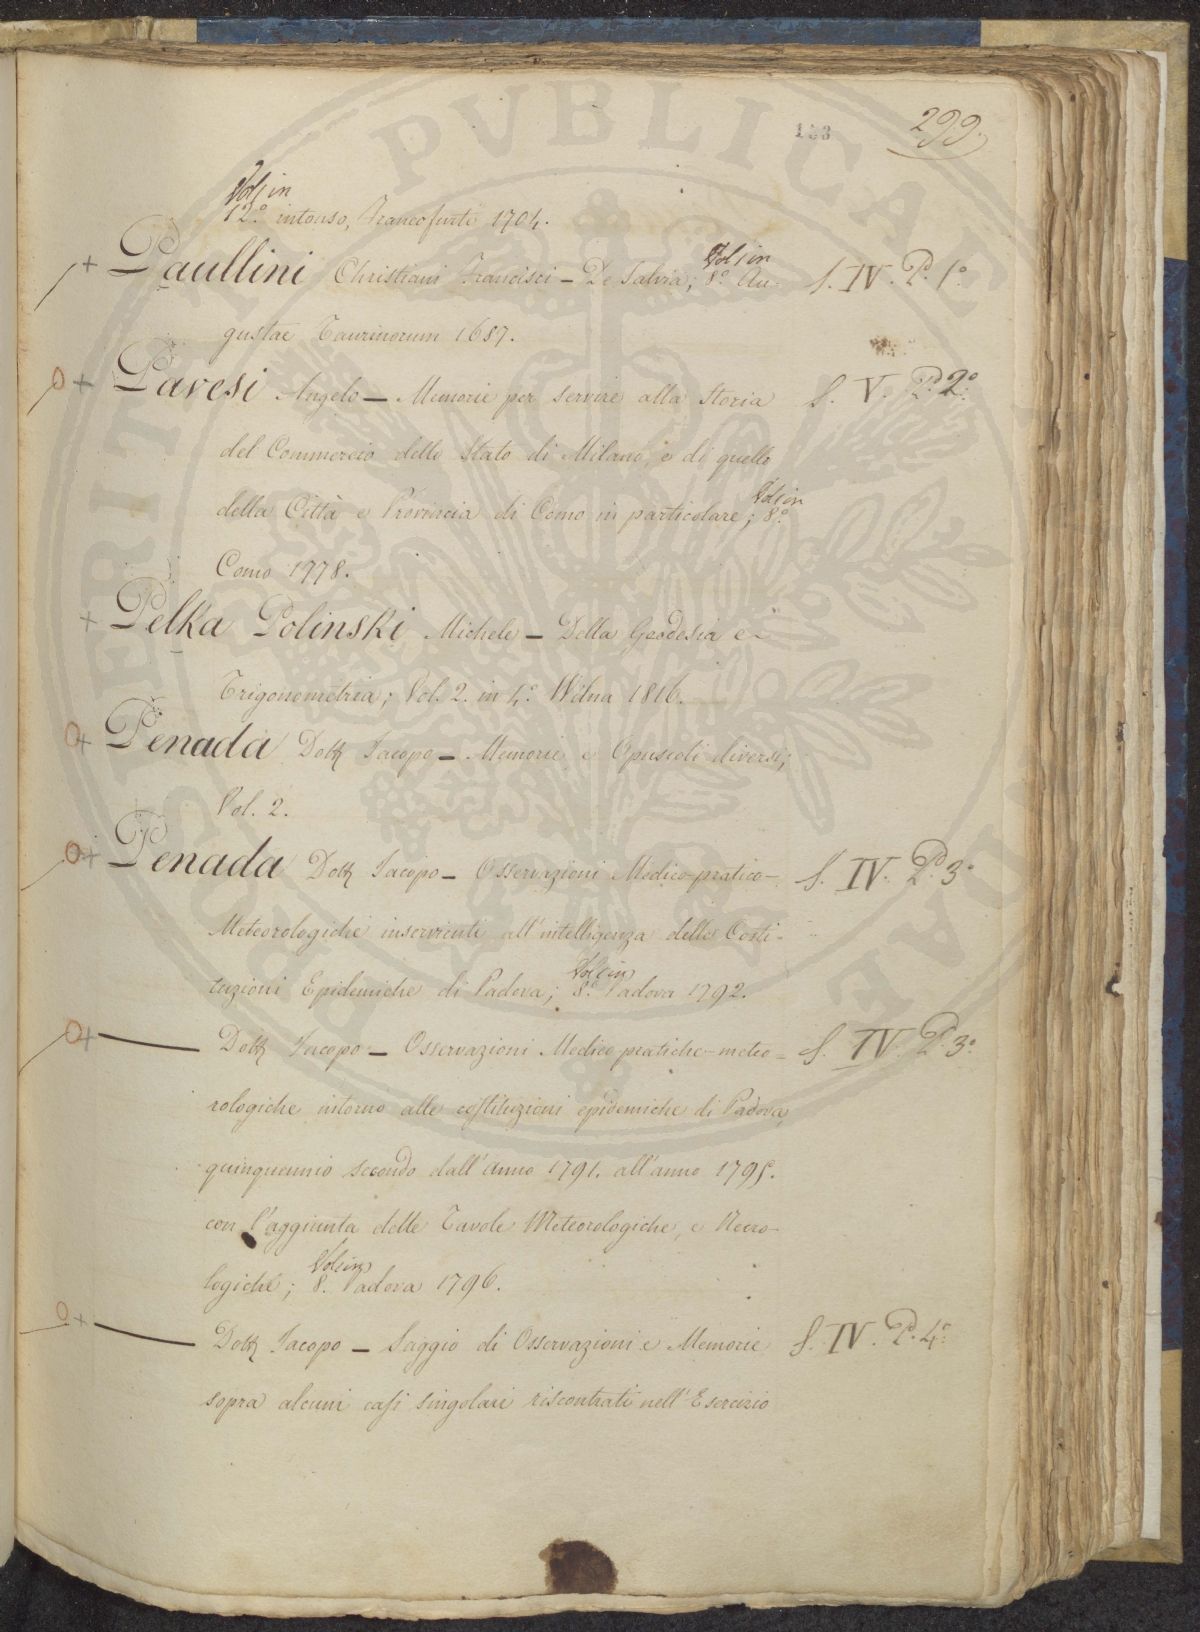 299.
Vol: in
12.° intonso, Francofurti 1704.
+ Paullini Christiani Francisci - De Salvia; Vol: in 8.° Au- S. IV. P.e 1.°
gustae Taurinorum 1687.
0+ Pavesi Angelo - Memorie per servire alla storia S. V. P.e 2.°
del Commercio dello Stato di Milano, e di quello
della Città e Provincia di Como in particolare; Vol: in 8.°
Como 1778.
+ Pelka Polinski Michele - Della Geodesia e
Trigonometria; Vol. 2. in 4.° Wilna 1816.
0+ Penada Dott Jacopo - Memorie e Opuscoli diversi;
Vol. 2.
0+ Penada Dott Jacopo - Osservazioni Medico-pratico- S. IV. P.e 3.°
Meteorologiche inservienti all'intelligenza delle Costi-
tuzioni Epidemiche di Padova; Vol: in 8.° Padova 1792.
0+ — Dott Jacopo - Osservazioni Medico pratiche-meteo- S. IV. P.e 3.°
rologiche intorno alle costituzioni epidemiche di Padova,
quinquennio secondo dall'anno 1791. all'anno 1795.
con l'aggiunta delle Tavole Meteorologiche, e Necro-
logiche; Vol: in 8. Padova 1796.
0+ — Dott Jacopo - Saggio di Osservazioni e Memorie S. IV. P.e 4.°
sopra alcuni casi singolari riscontrati nell'Esercizio
PROSPERITATI PVBLICAE